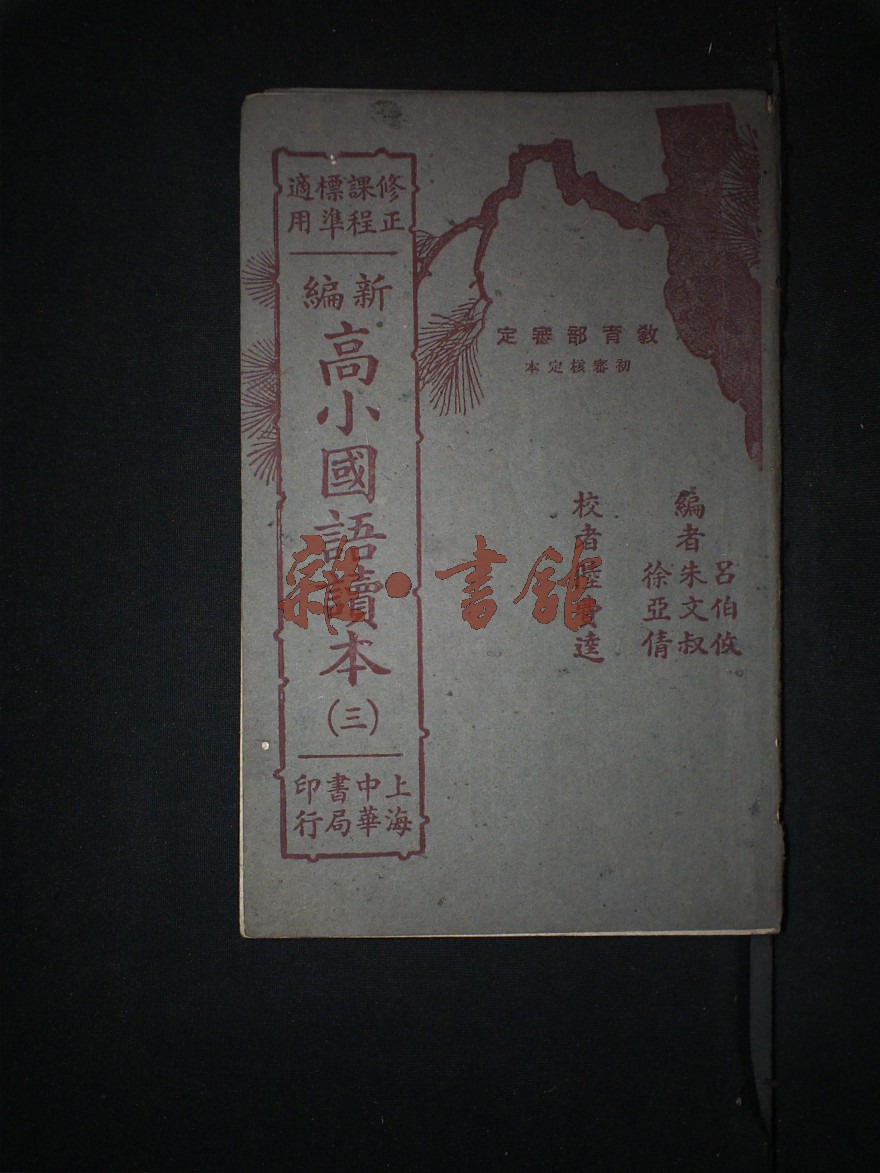 修正課程標準適用
新編
高小國語讀本
(三)
上海中華書局印行
教育部審定
初審核定本
編者
呂伯攸
朱文叔
徐亞倩
校者陸費逵
雜·書館